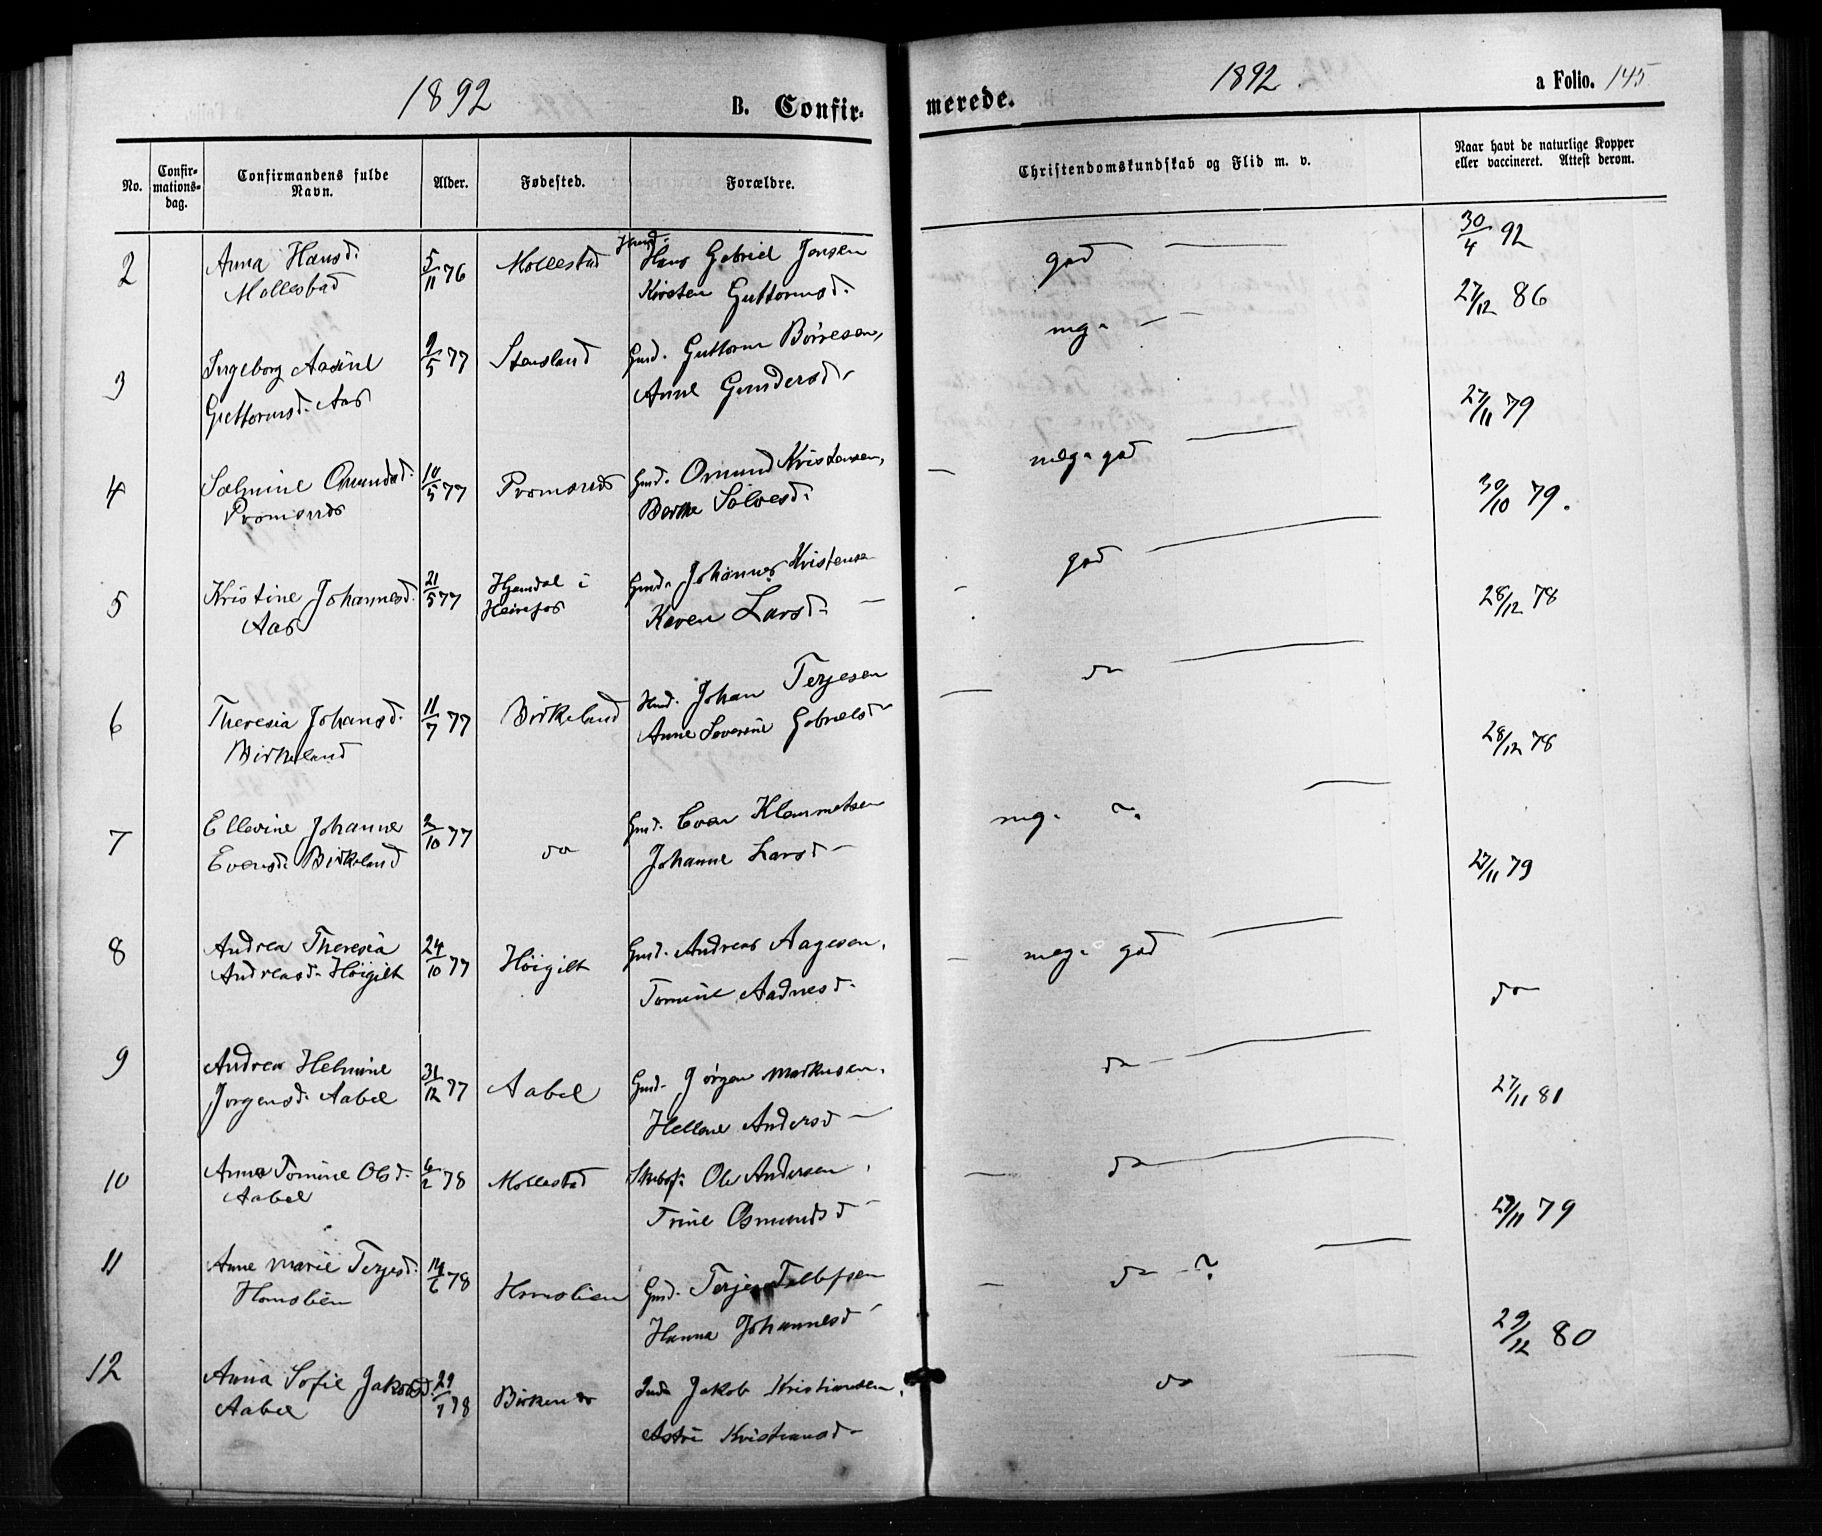 1892 B. Confir-
merede. 1892. a Folio. 145
No. Confir-mations-dag. Confirmandens fulde Navn. Alder. Fødested. Forældre. Christendomskundskab og Flid m. v. Naar havt de naturlige Kopper eller vaccineret. Attest derom.
2 Anna Hansd. 5/11 76 Mollestad Hans Gabriel Jensen god — 30/4 92
Mollestad Kirsten Guttormsd.
3 Ingeborg Aasine 9/5 77 Stensland Gmd. Guttorm Børresen, mg. — — 27/12 86
Guttormsd. Aas Anne Gundersd.
4 Salmine Omundsd. 10/5 77 Gmd. Omund Kristensen, meg. god — 27/11 79
Berthe Salvesd.
5 Kristine Johannesd. 21/5 77 Hjemdal i Gmd. Johannes Kristensen god — 30/10 79.
Aas Heirefos Karen Larsd. —
6 Theresia Johansd. 11/7 77 Birkeland Johan Terjesen do — 28/12 78
Birkeland Anne Severine Gabrielsd.
7 Ellevine Johanne 2/10 77 do Gmd. Even Klemmetsen mg. — 28/12 78
Evensd. Birkeland Johanne Larsd —
8 Andrea Theresia 24/10 77 Høigilt Gmd. Andreas Aagesen, meg. god — 27/11 79
Andreasd. Høigilt Tomine Aadnesd.
9 Andrea Helmine 31/12 77 Aabel Gmd. Jørgen Markusen, do — do
Jørgensd. Aabel Hellene Andersd —
10 Anne Tomine Olsd. 6/2 78 Mollestad Ole Andersen, do — 27/11 81
Aabel Trine Osmundsd
11 Anne Marie Terjesd. 14/6 78 Homslien Gmd. Terje Tellefsen do ? — 27/11 79
Homslien Hanna Johannesd
12 Anna Sofie Jakobsd. 29/7 78 Birkenes Jakob Kristiansen, do — 29/12 80
Aabel Astri Kristiansd.